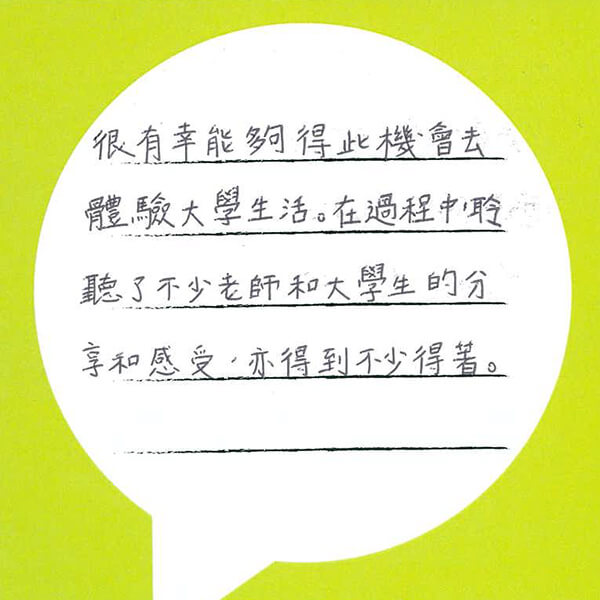 很有幸能夠得此機會去
體驗大學生活。在過程中聆
聽了不少老師和大學生的分
享和感受，亦得到不少得著。